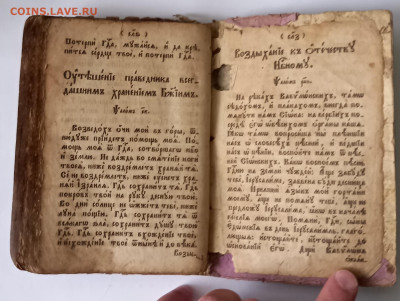 COINS.LAVE.RU
Потерпи Гдⷭ҇а, мꙋжайсѧ, и да крѣ-
питсѧ сердце твоѐ, и потерпи Гдⷭ҇а.
Оутѣшанїе праведника всег-
дашнимъ храненїемъ Бж҃їимъ.
Возведохъ очи мои въ горы, ѿ
нюдуже прїидетъ помощь моѧ. По-
мощь моѧ ѿ Гдⷭ҇а, сотворшагѡ нб҃о
и землю. Не даждь во смѧтенїе ноги
твоеѧ, ниже воздремлетъ хранѧй тѧ.
Се не воздремлетъ, ниже ѹснетъ хра-
нѧй Їзраилѧ. Гдⷭ҇ь сохранитъ тѧ, Гдⷭ҇ь
покровъ твой на рꙋкꙋ деснꙋю твою.
Во дни солнце не ѡжжетъ тебе, ниже
лꙋна нощїю. Гдⷭ҇ь сохранитъ тѧ ѿ
всѧкагѡ зла, сохранитъ дꙋшꙋ твою
Гдⷭ҇ь. Гдⷭ҇ь сохранитъ вхожденїе твое,
и исхожденїе твое ѿнынѣ и до вѣка.
Возды-
Воздыханїе къ отечествꙋ
Нбⷭ҇номꙋ.
На рѣкахъ Вавѷлѡнскихъ, тамѡ
сѣдохомъ, и плакахомъ, внегда по-
мѧнꙋти намъ Сїѡна: на вербїихъ по-
средѣ егѡ ѡбѣсихомъ органы нашѧ.
Ꙗкѡ тамѡ вопросиша ны плѣншїи
насъ ѡ словесѣхъ пѣсней, и ведшїи
насъ ѡ пѣнїи, воспойте намъ ѿ пѣ-
сней Сїѡнскихъ. Какѡ воспоемъ пѣснь
Гдⷭ҇ню на земли чꙋждей: аще забꙋдꙋ
тебе, Їерꙋсалиме, забвена бꙋди десница
моѧ. Прилпни ѧзыкъ мой гортани
моемꙋ, аще не помѧнꙋ тебе, аще не
предложꙋ Їерꙋсалима, ꙗкѡ въ началѣ
веселїѧ моегѡ. Помѧни, Гдⷭ҇и, сыны
Єдѡмскїѧ въ день Їерꙋсалимль, глаго-
лющыѧ: истощайте, истощайте до
ѡснованїй егѡ. Дщи Вавѷлѡнѧ